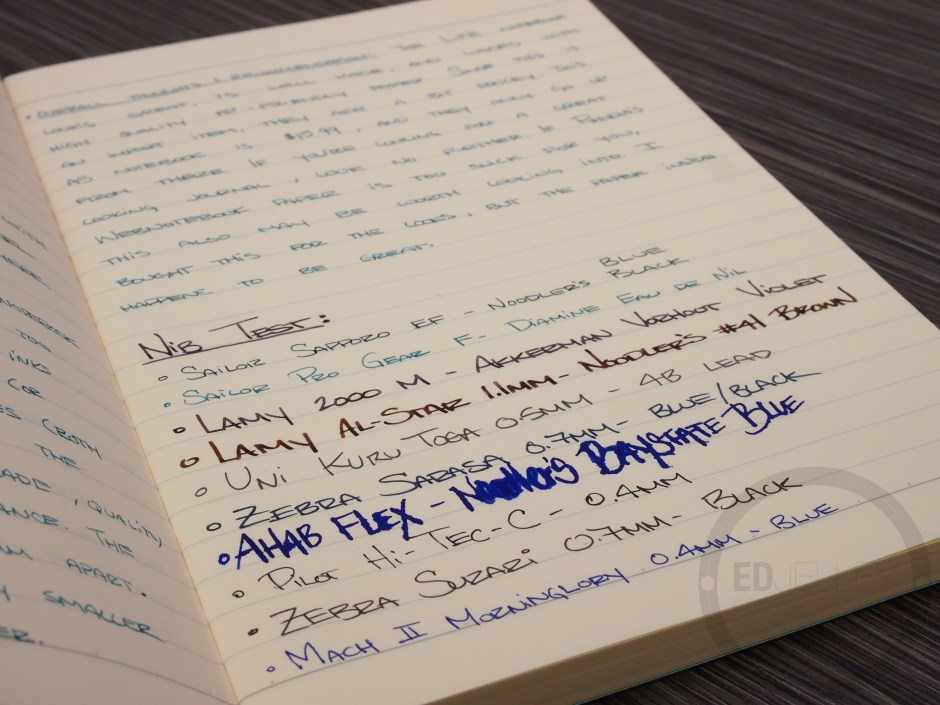 WITH
THE
INK
FOR
BOTH
THE
QUALITY
THE
APART.
SMALLER
OVERALL THOUGHTS & RECOMMENDATIONS: THE LIFE NOTEBOOK
LOOKS GREAT, IS WELL MADE, AND LOADED WITH
HIGH QUALITY FP-FRIENDLY PAPER. SINCE THIS IS
AN IMPORT ITEM, THEY ARE A BIT PRICEY. THIS
A5 NOTEBOOK IS $19.99, AND THEY ONLY GO UP
FROM THERE. IF YOU'RE LOOKING FOR A GREAT
LOOKING JOURNAL, LOOK NO FURTHER. IF RHODIA'S
WEBNOTEBOOK PAPER IS TOO SLICK FOR YOU,
THIS ALSO MAY BE WORTH LOOKING INTO. I
BOUGHT THIS FOR THE LOOKS, BUT THE PAPER INSIDE
HAPPENS TO BE GREAT.
NIB TEST:
• SAILOR SAPPORO EF - NOODLER'S BLUE BLACK
• SAILOR PRO GEAR F - DIAMINE EAU DE NIL
• LAMY 2000 M - AKKERMAN VOORHOUT VIOLET
• LAMY AL-STAR 1.1MM - NOODLER'S #41 BROWN
• UNI KURU TOGA 0.5MM - 4B LEAD
• ZEBRA SARASA 0.7MM - BLUE/BLACK
• AHAB FLEX - NOODLER'S BAYSTATE BLUE
• PILOT HI-TEC-C - 0.4MM
• ZEBRA SURARI 0.7MM - BLACK
• MACH II MORNINGLORY 0.4MM - BLUE
ED JELLEY